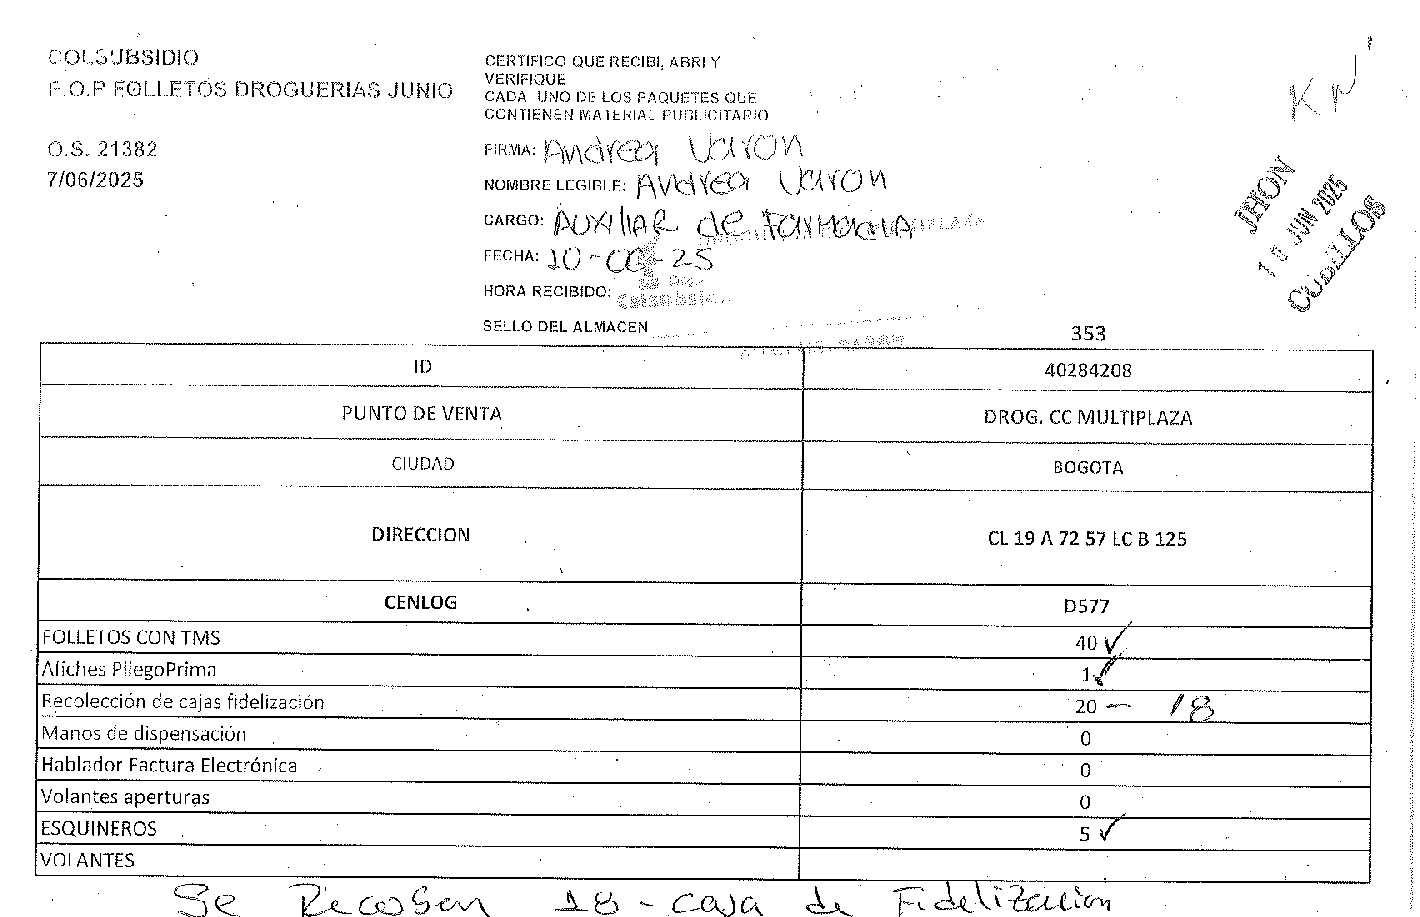 COLSUBSIDIO
P.O.P FOLLETOS DROGUERIAS JUNIO
O.S. 21382
7/06/2025
CERTIFICO QUE RECIBI, ABRI Y
VERIFIQUE
CADA UNO DE LOS PAQUETES QUE
CONTIENEN MATERIAL PUBLICITARIO
FIRMA: Andrea Varon
NOMBRE LEGIBLE: Andrea Varon
CARGO: Auxiliar de Farmacia
FECHA: 10-06-25
HORA RECIBIDO:
Colsubsidio
SELLO DEL ALMACEN
JHON
10 JUN 2025
CUBILLOS
353
ID 40284208
PUNTO DE VENTA DROG. CC MULTIPLAZA
CIUDAD BOGOTA
DIRECCION CL 19 A 72 57 LC B 125
CENLOG D577
FOLLETOS CON TMS 40 ✓
Afiches PliegoPrima 1 ✓
Recolección de cajas fidelización 20 — 18
Manos de dispensación 0
Hablador Factura Electrónica 0
Volantes aperturas 0
ESQUINEROS 5 ✓
VOLANTES
Se Recogen 18 - caja de Fidelización